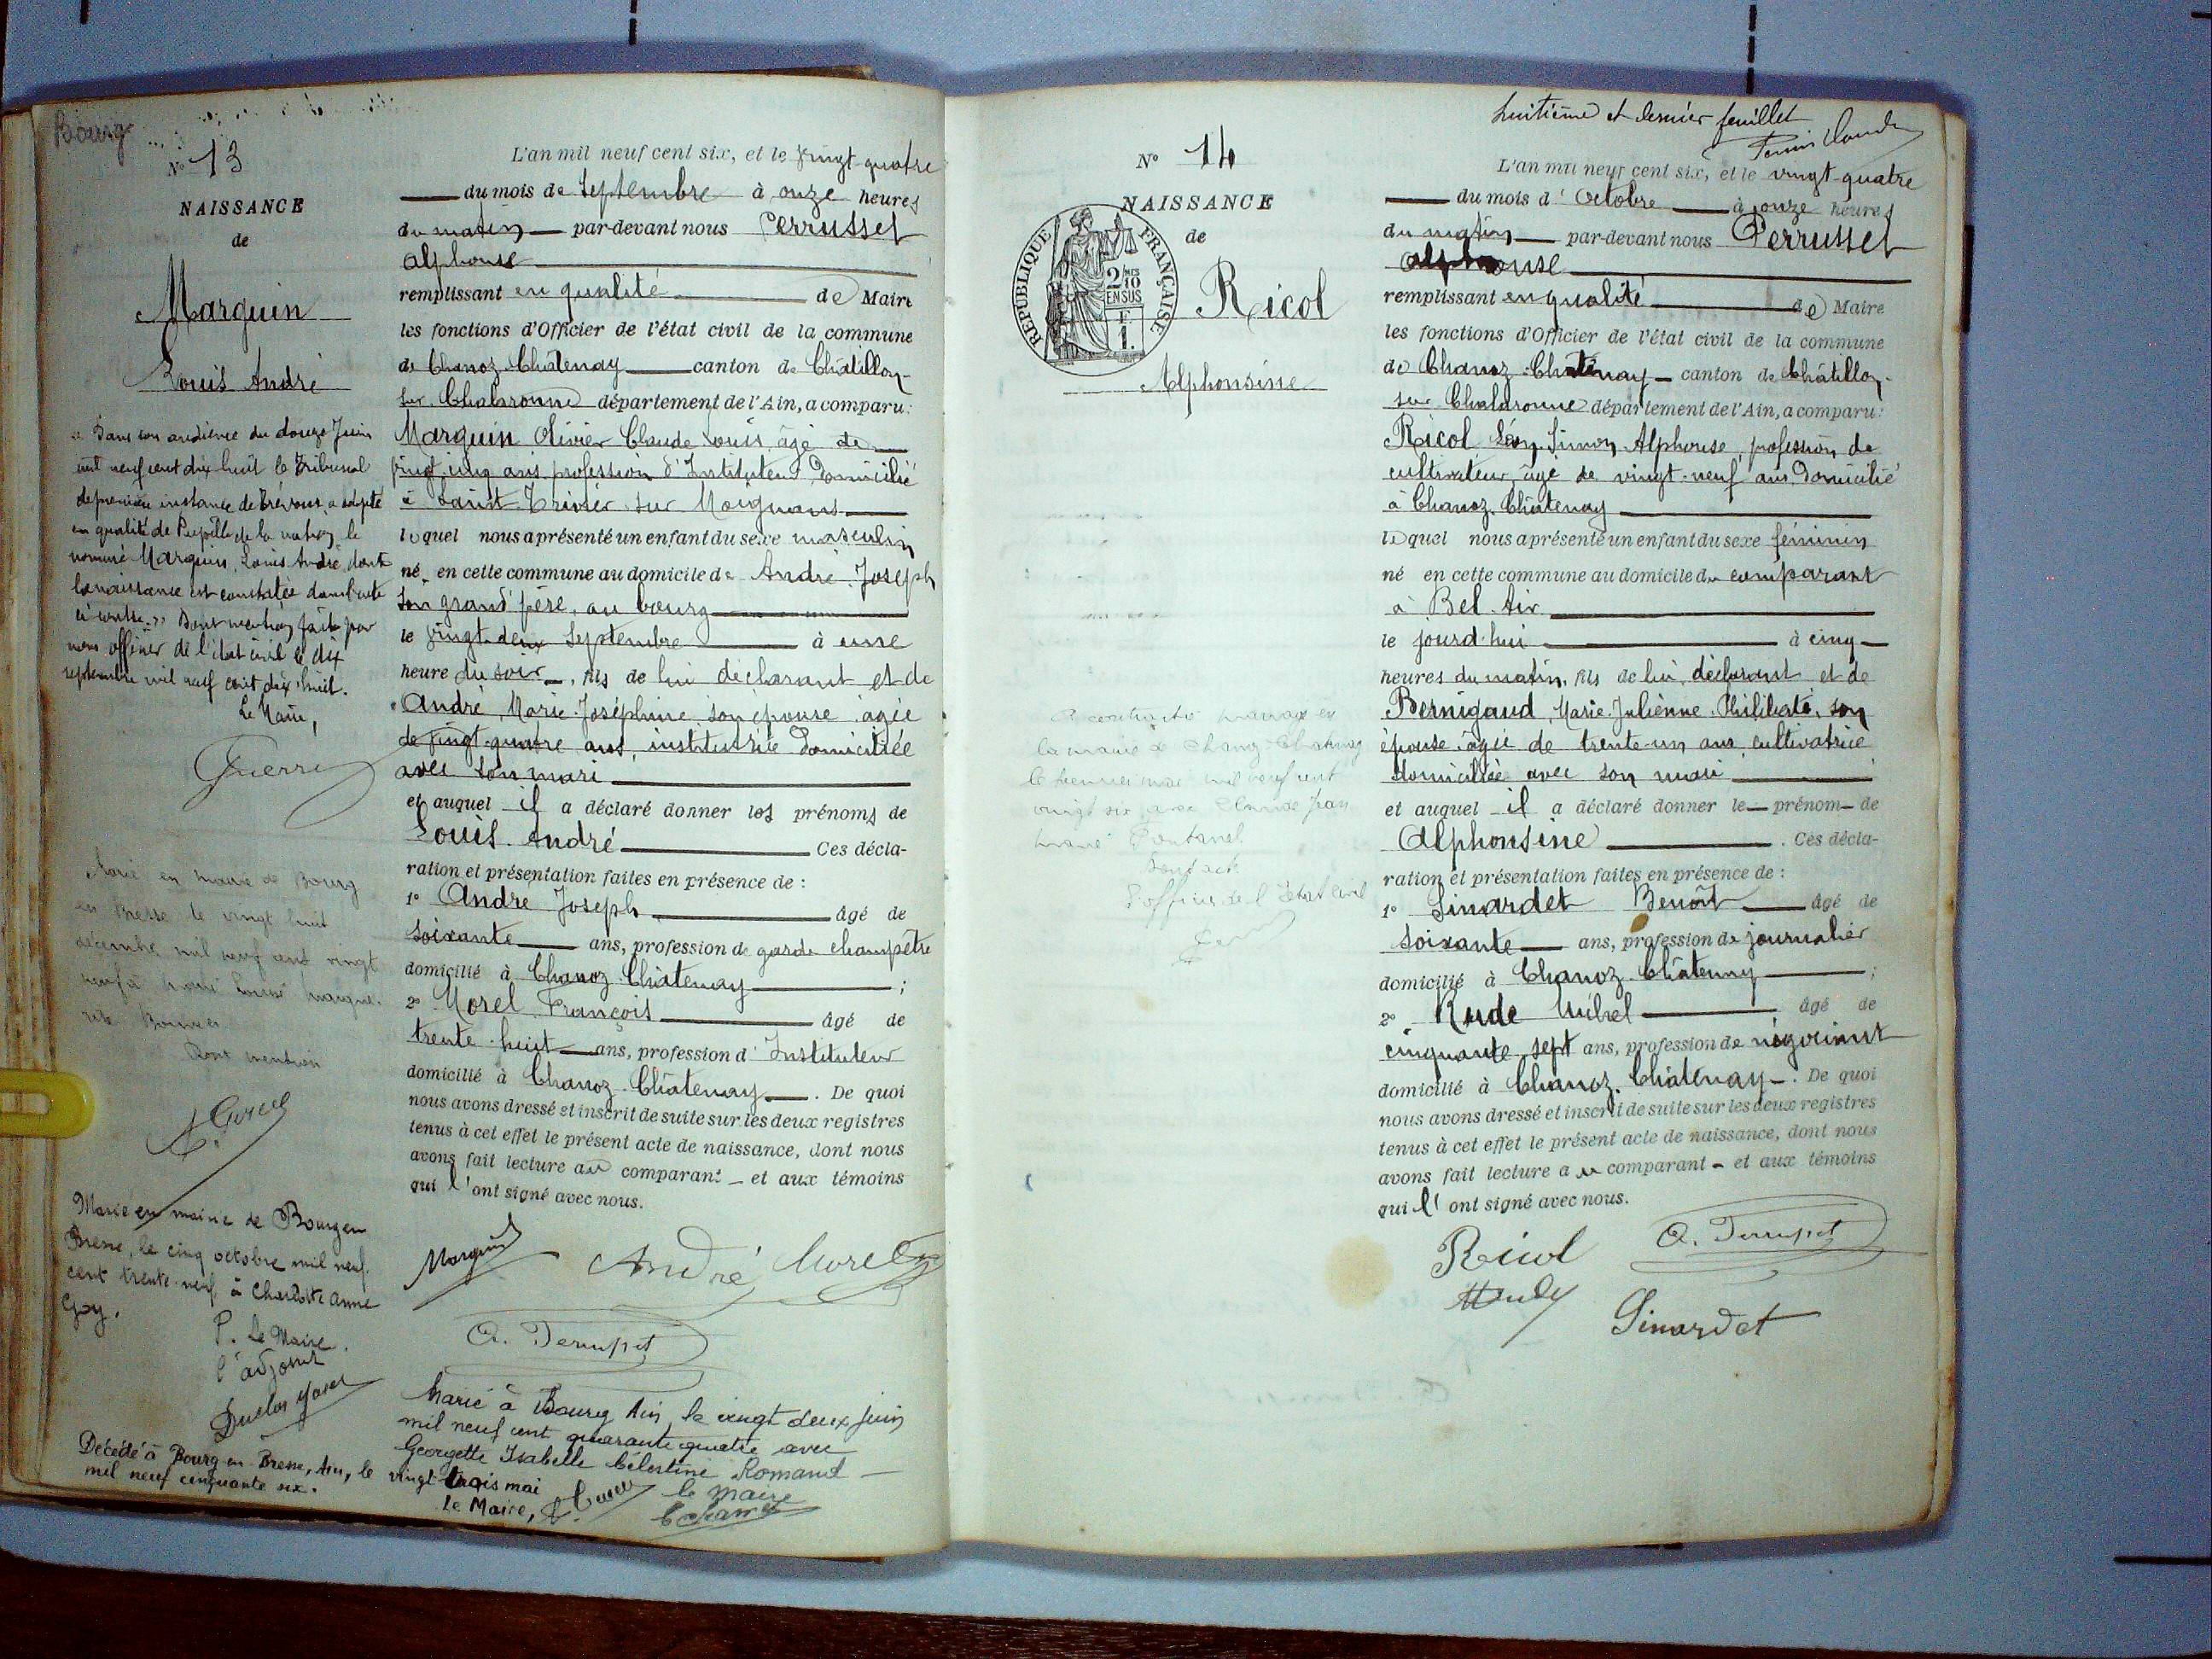 Bourg
N° 13
NAISSANCE
de
Marguin
Louis André
« Dans son audience du douze Juin
mil neuf cent dix huit le Tribunal
de première instance de Trévoux a adopté
en qualité de Pupille de la nation le
nommé Marguin, Louis André, dont
la naissance est constatée dans l'acte
ci contre. » Dont mention faite par
nous officier de l'état civil le dix
septembre mil neuf cent dix huit.
Le Maire,
Guerry
Marié en mairie de Bourg
en Bresse le vingt huit
décembre mil neuf cent vingt
neuf à Marie Louise Margue-
rite
Dont mention
Marié en mairie de Bourg en
Bresse, le cinq octobre mil neuf
cent trente-neuf, à Charlotte Anne
Goy.
P. Le Maire.
l'adjoint
Décédé à Bourg en Bresse, Ain, le vingt trois mai
mil neuf cinquante six.
Le Maire,
L'an mil neuf cent six, et le vingt-quatre
du mois de Septembre à onze heures
du matin par-devant nous Perrusset
Alphonse
remplissant en qualité de Maire
les fonctions d'Officier de l'état civil de la commune
de Chanoz-Châtenay canton de Châtillon-
sur-Chalaronne département de l'Ain, a comparu:
Marguin Olivier Claude Louis, âgé de
vingt-cinq ans, profession d'Instituteur domicilié
à Saint-Trivier-sur-Moignans
lequel nous a présenté un enfant du sexe masculin
né en cette commune au domicile de André Joseph
son grand'père, au bourg
le vingt-deux septembre à une
heure du soir, fils de lui déclarant et de
André, Marie-Joséphine, son épouse, âgée
de vingt-quatre ans, institutrice domiciliée
avec son mari
et auquel il a déclaré donner les prénoms de
Louis André Ces décla-
ration et présentation faites en présence de :
1° André Joseph âgé de
soixante ans, profession de garde champêtre
domicilié à Chanoz-Châtenay ;
2° Morel François âgé de
trente-huit ans, profession d'Instituteur
domicilié à Chanoz-Châtenay. De quoi
nous avons dressé et inscrit de suite sur les deux registres
tenus à cet effet le présent acte de naissance, dont nous
avons fait lecture au comparant et aux témoins
qui l'ont signé avec nous.
Marguin André Morel
A. Perrusset
Marié à Bourg Ain, le vingt deux juin
mil neuf cent quarante quatre avec
Georgette Isabelle Célestine Romand
le maire
huitième et dernier feuillet
N° 14
NAISSANCE
de
RÉPUBLIQUE FRANÇAISE
2/10 MES
EN SUS
F
1.
Ricol
Alphonsine
A contracté mariage en
la mairie de Chanoz-Chatenay
le premier mai mil neuf cent
vingt six avec Claude Jean
Dont acte
L'officier de l'Etat Civil
L'an mil neuf cent six, et le vingt-quatre
du mois d'Octobre à onze heures
du matin par-devant nous Perrusset
Alphonse
remplissant en qualité de Maire
les fonctions d'Officier de l'état civil de la commune
de Chanoz-Châtenay canton de Châtillon-
sur Chalaronne département de l'Ain, a comparu:
Ricol Léon Simon Alphonse, profession de
cultivateur, âgé de vingt-neuf ans domicilié
à Chanoz-Châtenay
lequel nous a présenté un enfant du sexe féminin
né en cette commune au domicile du comparant
à Bel-Air
le jourd'hui à cinq
heures du matin, fils de lui, déclarant et de
Bernigaud, Marie-Julienne-Philiberte, son
épouse âgée de trente-un ans, cultivatrice
domiciliée avec son mari
et auquel il a déclaré donner le prénom de
Alphonsine. Ces décla-
ration et présentation faites en présence de :
1° Sinardet Benoît âgé de
soixante ans, profession de journalier
domicilié à Chanoz-Châtenay ;
2° Rude Michel âgé de
cinquante sept ans, profession de négociant
domicilié à Chanoz-Châtenay. De quoi
nous avons dressé et inscrit de suite sur les deux registres
tenus à cet effet le présent acte de naissance, dont nous
avons fait lecture au comparant et aux témoins
qui l'ont signé avec nous.
Ricol A. Perrusset
Rude Sinardet